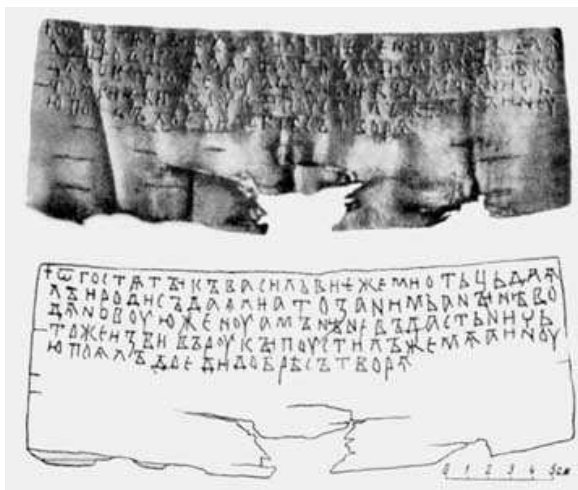 +ѿгостѧтꙑкъвасильвиежемиотьцьдаѧ
лъиродисъдаѧлиатозанимьанꙑнѣво
дѧновоуюженоуамънѣневъдастьничь
тожеизбивъроукꙑпоустилъжемѧаиноу
юпоѧлъдоедидобрѣсътворѧ
0 1 2 3 4 5см